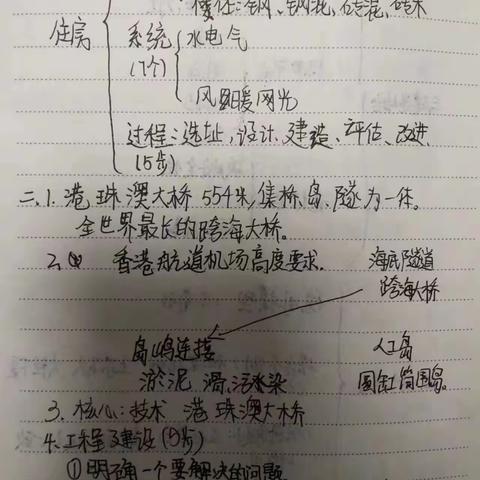 楼任:钢、钢混、砖混、砖木
住房
系统 水电气
(7个)
风暖网光
过程:选址,设计、建造、评估、改进
(5步)
二.1.港珠澳大桥 554米,集桥、岛、隧为一体。
全世界最长的跨海大桥。
2.① 香港航道机场高度要求. 海底隧道
跨海大桥
岛屿连接 人工岛
淤泥 滑、污水染 圆缸筒围岛。
3.核心:技术 港珠澳大桥
4.工程建设(5步)
①明确一个要解决的问题